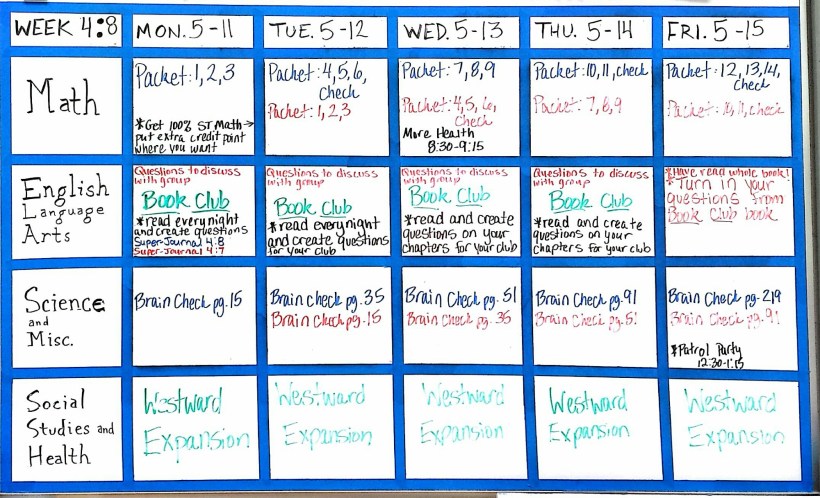 WEEK 4:8
MON. 5-11
TUE. 5-12
WED. 5-13
THU. 5-14
FRI. 5-15
Math
Packet:1,2,3
*Get 100% ST Math→
put extra credit point
where you want
Packet:4,5,6,
Check
Packet: 1,2,3
Packet: 7,8,9
Packet:4,5,6,
Check
More Health
8:30-9:15
Packet:10,11,check
Packet: 7,8,9
Packet:12,13,14,
Check
Packet: 10,11,check
English
Language
Arts
Questions to discuss
with group
Book Club
*read every night
and create questions
Super-Journal 4:8
Super-Journal 4:7
Questions to discuss
with group
Book Club
*read every night
and create questions
for your club
Questions to discuss
with group
Book Club
*read and create
questions on your
chapters for your club
Questions to discuss
with group
Book Club
*read and create
questions on your
chapters for your club
*Have read whole book!
*Turn in your
questions from
Book Club book
Science
and
Misc.
Brain Check pg.15
Brain check pg.35
Brain Check pg.15
Brain Check pg. 51
Brain Check pg. 35
Brain Check pg.91
Brain Check pg.51
Brain Check pg.219
Brain Check pg.91
*Patrol Party
12:30-1:15
Social
Studies and
Health
Westward
Expansion
Westward
Expansion
Westward
Expansion
Westward
Expansion
Westward
Expansion